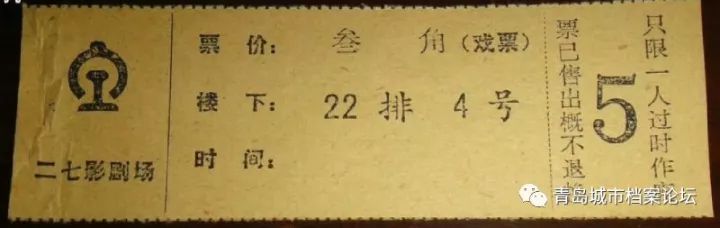 二七影剧场
票价：叁角（戏票）
楼下：22排4号
时间：
票已售出概不退
5
只限一人过时作
青岛城市档案论坛